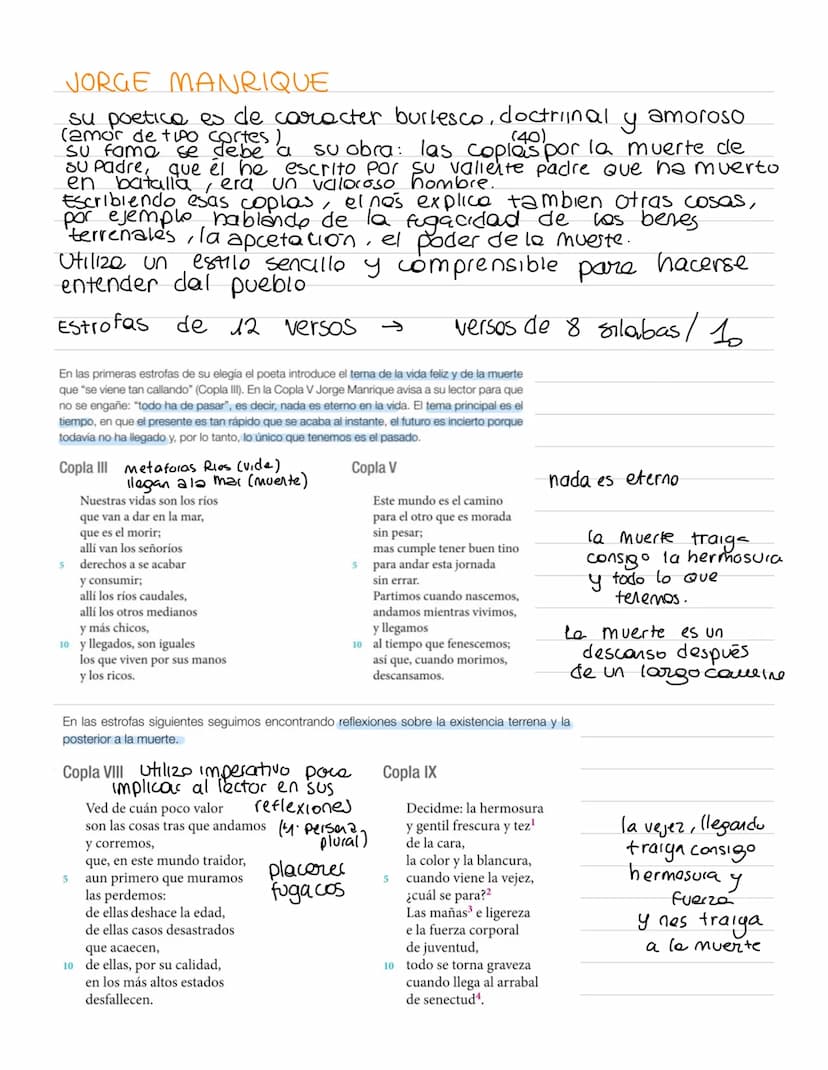 JORGE MANRIQUE
su poetica es de caracter burlesco, doctriinal y amoroso
(amor de tipo cortes) (40)
su fama se debe a su obra: las coplas por la muerte de
su padre, que él ha escrito por su valiente padre que ha muerto
en batalla, era un valoroso hombre.
Escribiendo esas coplas, el nos explica tambien otras cosas,
por ejemplo hablando de la fugacidad de los benes
terrenales, la apcetación, el poder de la mueste.
Utiliza un estilo sencillo y comprensible para hacerse
entender dal pueblo
Estrofas de 12 versos → versos de 8 silabas/
En las primeras estrofas de su elegía el poeta introduce el tema de la vida feliz y de la muerte
que "se viene tan callando" (Copla III). En la Copla V Jorge Manrique avisa a su lector para que
no se engañe: "todo ha de pasar", es decir, nada es eterno en la vida. El tema principal es el
tiempo, en que el presente es tan rápido que se acaba al instante, el futuro es incierto porque
todavía no ha llegado y, por lo tanto, lo único que tenemos es el pasado.
Copla III
metaforas Rios (vida)
llegan a la mar (muerte)
Nuestras vidas son los ríos
que van a dar en la mar,
que es el morir;
allí van los señoríos
5 derechos a se acabar
y consumir;
allí los ríos caudales,
allí los otros medianos
y más chicos,
10 y llegados, son iguales
los que viven por sus manos
y los ricos.
Copla V
Este mundo es el camino
para el otro que es morada
sin pesar;
mas cumple tener buen tino
5 para andar esta jornada
sin errar.
Partimos cuando nascemos,
andamos mientras vivimos,
y llegamos
10 al tiempo que fenescemos;
así que, cuando morimos,
descansamos.
nada es eterno
la muerte traiga
consigo la hermosura
y todo lo que
tenemos.
La muerte es un
descanso después
de un largo
En las estrofas siguientes seguimos encontrando reflexiones sobre la existencia terrena y la
posterior a la muerte.
Copla VIII
utilizo imperativo para
implicar al lector en sus
reflexiones
persona
plural)
placeres
fugacos
Ved de cuán poco valor
son las cosas tras que andamos
y corremos,
que, en este mundo traidor,
5 aun primero que muramos
las perdemos:
de ellas deshace la edad,
de ellas casos desastrados
que acaecen,
10 de ellas, por su calidad,
en los más altos estados
desfallecen.
Copla IX
Decidme: la hermosura
y gentil frescura y tez1
de la cara,
la color y la blancura,
5 cuando viene la vejez,
¿cuál se para?2
Las mañas3 e ligereza
e la fuerza corporal
de juventud,
10 todo se torna graveza
cuando llega al arrabal
de senectud4.
la vejez, llegando
traiga consigo
hermosura y
fuerza
y nos traiga
a la muerte